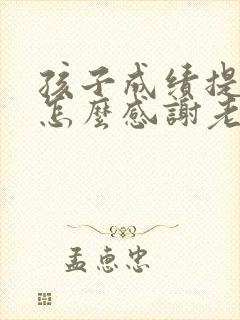 孩子成績提
怎麼感謝老
孟惠忠